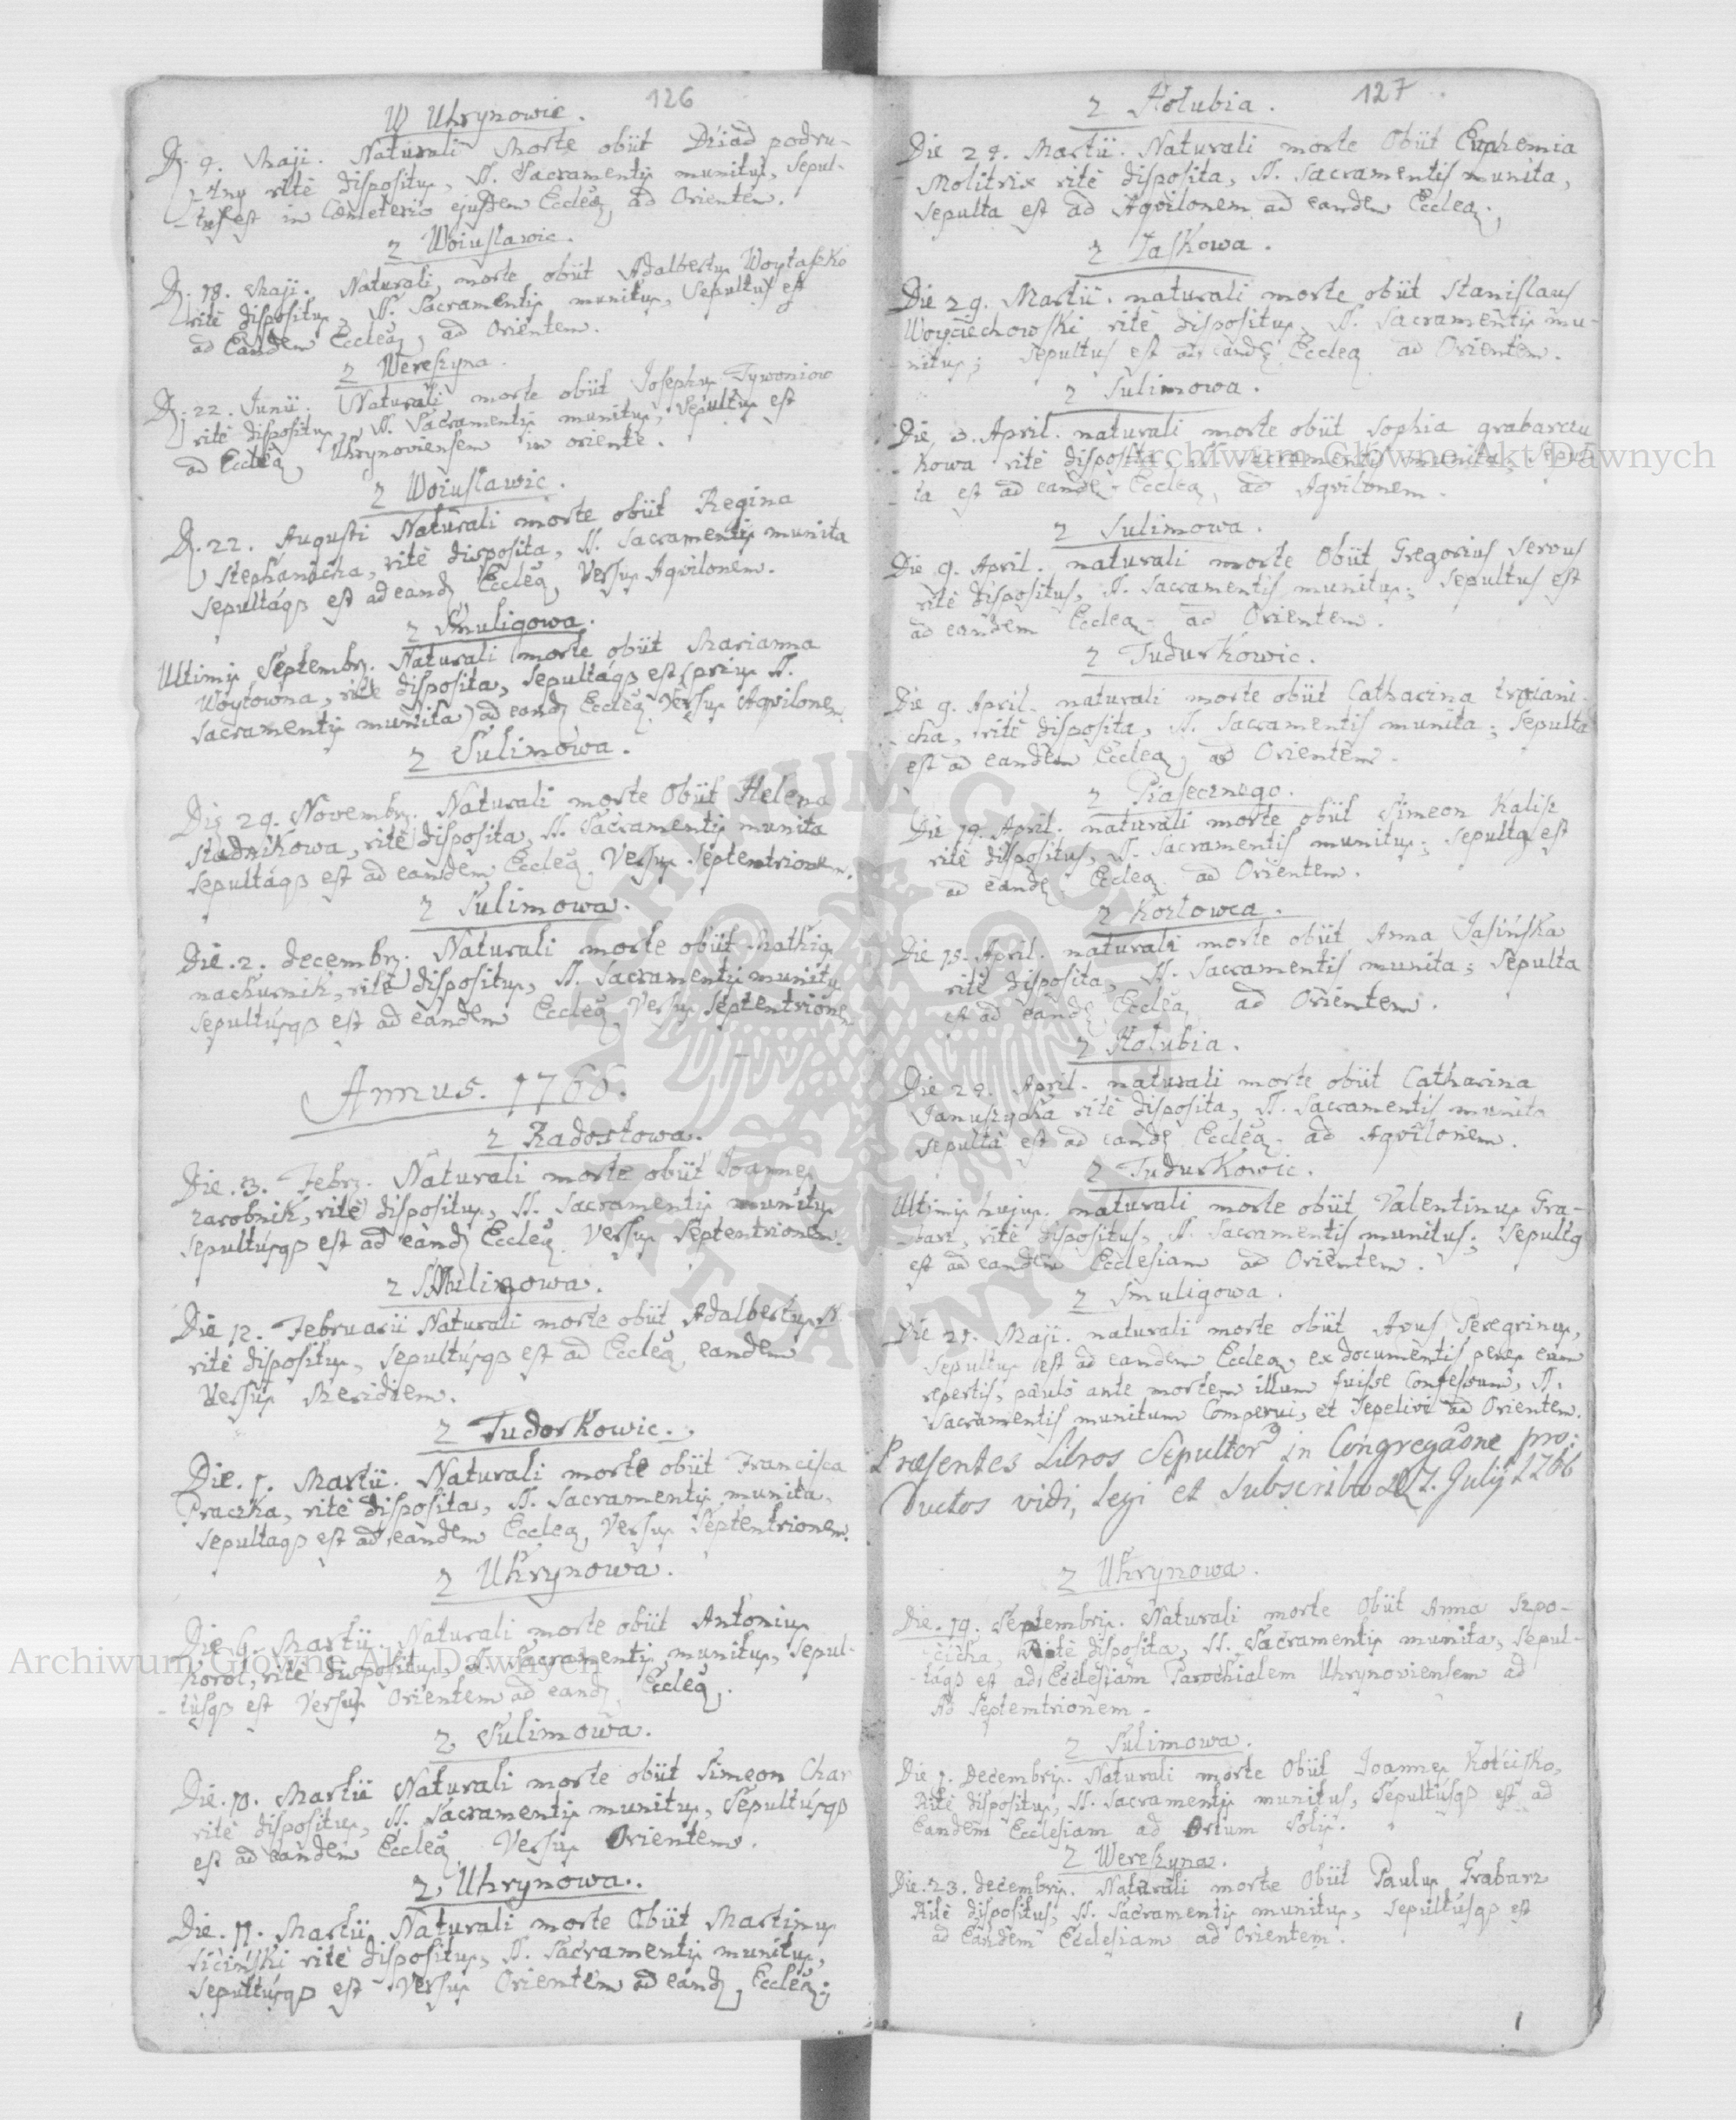 126
W Uhrynowie.
D. 9. Maji. Naturali Morte obiit Dziad podru-
-żny ritè dispositus, SS. Sacramentis munitus, sepul-
-tus est in Cœmeterio ejusdem Eccleæ, ad Orientem.
z Woiuslawic.
D. 18. Maji. Naturali morte obiit Adalbertus Woytaszko
ritè dispositus, SS. Sacramentis munitus, sepultus est
ad Eandem Eccleą, ad Orientem.
z Wereszyna.
D. 22. Junii. Naturali morte obiit Josephus Tywoniow
ritè dispositus, SS. Sacramentis munitus, sepultus est
ad Eccleą, Uhrynoviensem in oriente.
z Woiuslawic.
D. 22. Augusti Naturali morte obiit Regina
Stephanicha, ritè disposita, SS. Sacramentis munita
sepultáqꝫ est ad eandę Eccleą, Versus Aqvilonem.
z Smuligowa.
Ultimis Septembrꝫ. Naturali morte obiit Marianna
Woytowna, ritè disposita, sepultáqꝫ est (prius SS.
sacramentis munita) ad eandę Eccleą Versus Aqvilonem.
z Sulimowa.
Die 29. Novembrꝫ. Naturali morte Obiit Helena
Stadnikowa, ritè disposita, SS. Sacramentis munita
sepultáqꝫ est ad eamdem Eccleą, Versus Septentrionem.
z Sulimowa.
Die. 2. decembrꝫ. Naturali morte obiit Mathias
nachurnik, ritè dispositus, SS. Sacramentis munitus
sepultúsqꝫ est ad eandem Eccleą, Versus Septentrionem
Annus. 1766.
z Radostowa.
Die. 3. Febrꝫ. Naturali morte obiit Joannes
zarobnik, ritè dispositus, SS. Sacramentis munitus
sepultúsqꝫ est ad eandę Eccleą, Versus Septentrionem.
z Smuligowa.
Die 12. Februarii Naturali morte obiit Adalbertus
ritè dispositus, sepultúsqꝫ est ad Eccleą, eandem
Versus Meridiem.
z Tudorkowic.
Die. 1. Martii. Naturali morte obiit Francisca
Praczka, ritè disposita, SS. Sacramentis munita,
sepultaqꝫ est ad eandem Eccleą, Versus Septentrionem.
z Uhrynowa.
Die 6. Martii. Naturali morte obiit Antonius
Korol, ritè dispositus, SS. Sacramentis munitus, sepul-
-túsqꝫ est Versus Orientem ad eandę, Eccleą.
z Sulimowa.
Die. 10. Martii Naturali morte obiit Simeon Char
ritè dispositus, SS. Sacramentis munitus, sepultúsqꝫ
est ad eandem Eccleą Versus Orientem.
z Uhrynowa.
Die. 11. Martii. Naturali morte Obiit Martinus
Siciński ritè dispositus, SS. Sacramentis munitus,
sepultúsqꝫ est Versus Orientem ad eandę, Eccleą;
127
z Hołubia.
Die 29. Martii. Naturali morte Obiit Euphemia
Molitrix ritè disposita, SS. Sacramentis munita,
sepulta est ad Aqvilonem ad eandem Eccleą;
z Jaskowa.
Die 29. Martii. naturali morte obiit Stanislaus
Woyciechowski ritè dispositus, SS. Sacramentis mu-
-nitus; sepultus est ad eandę Eccleą ad Orientem.
z Sulimowa.
Die 3. April. naturali morte obiit Sophia grabarczu
kowa ritè disposita, SS. Sacramentis munita, sepul
ta est ad eandę Eccleą, ad Aqvilonem.
z Sulimowa.
Die 9. April. naturali morte Obiit Gregorius Servus
ritè dispositus, SS. Sacramentis munitus; sepultus est
ad eandem Eccleą ad Orientem.
z Tudurkowic.
Die 9. April. naturali morte obiit Catharina troiani-
cha, ritè disposita, SS. Sacramentis munita; sepulta
est ad eandem Eccleą, ad Orientem.
z Piasecznego.
Die 19. April. naturali morte obiit Simeon Kalisz
ritè dispositus, SS. Sacramentis munitus; sepultꝯ est
ad eandę Eccleą ad Orientem.
z Korłowca.
Die 15. April. naturali morte obiit Anna Jasińska
ritè disposita, SS. Sacramentis munita; sepulta
est ad eandę Eccleą ad Orientem.
z Hołubia.
Die 29. April. naturali morte obiit Catharina
Januszycha ritè disposita, SS. Sacramentis munita
sepulta est ad eandę Eccleą ad Aqvilonem.
z Tudurkowic.
Ultimis hujus. naturali morte obiit Valentinus Gra-
-barz, ritè dispositus, SS. Sacramentis munitus; sepultꝯ
est ad eandem Ecclesiam ad Orientem.
z Smuligowa.
Die 21. Maji. naturali morte obiit Avus Peregrinus,
sepultus est ad eandem Eccleą, ex documentis penes eum
repertis, paulò ante mortem illum fuisse Confessum, SS.
Sacramentis munitum Comperui, et sepelivi ad Orientem.
Præsentes Libros Sepultorꝯ in Congregaõne pro-
ductos vidi, legi et subscribo 1. Julij 1766
z Uhrynowa.
Die. 19. Septembris. Naturali morte Obiit Anna Szpo-
-cicha, Ritè disposita, SS. Sacramentis munita, sepul-
-taqꝫ est ad Ecclesiam Parochialem Uhrynoviensem ad
Ad Septemtrionem.
z Sulimowa.
Die 1. Decembris. Naturali morte Obiit Joannes Kotcisko,
Ritè dispositus, SS. Sacramentis munitus, Sepultúsqꝫ est ad
Eandem Ecclesiam ad Ortum Solis.
z Wereszyna.
Die. 23. decembris. Naturali morte Obiit Paulus Grabarz
Ritè dispositus, SS. Sacramentis munitus, sepultúsqꝫ est
ad Eandem Ecclesiam ad Orientem.
1
Archiwum Główne Akt Dawnych
Archiwum Główne Akt Dawnych
ARCHIWUM GŁÓWNE AKT DAWNYCH